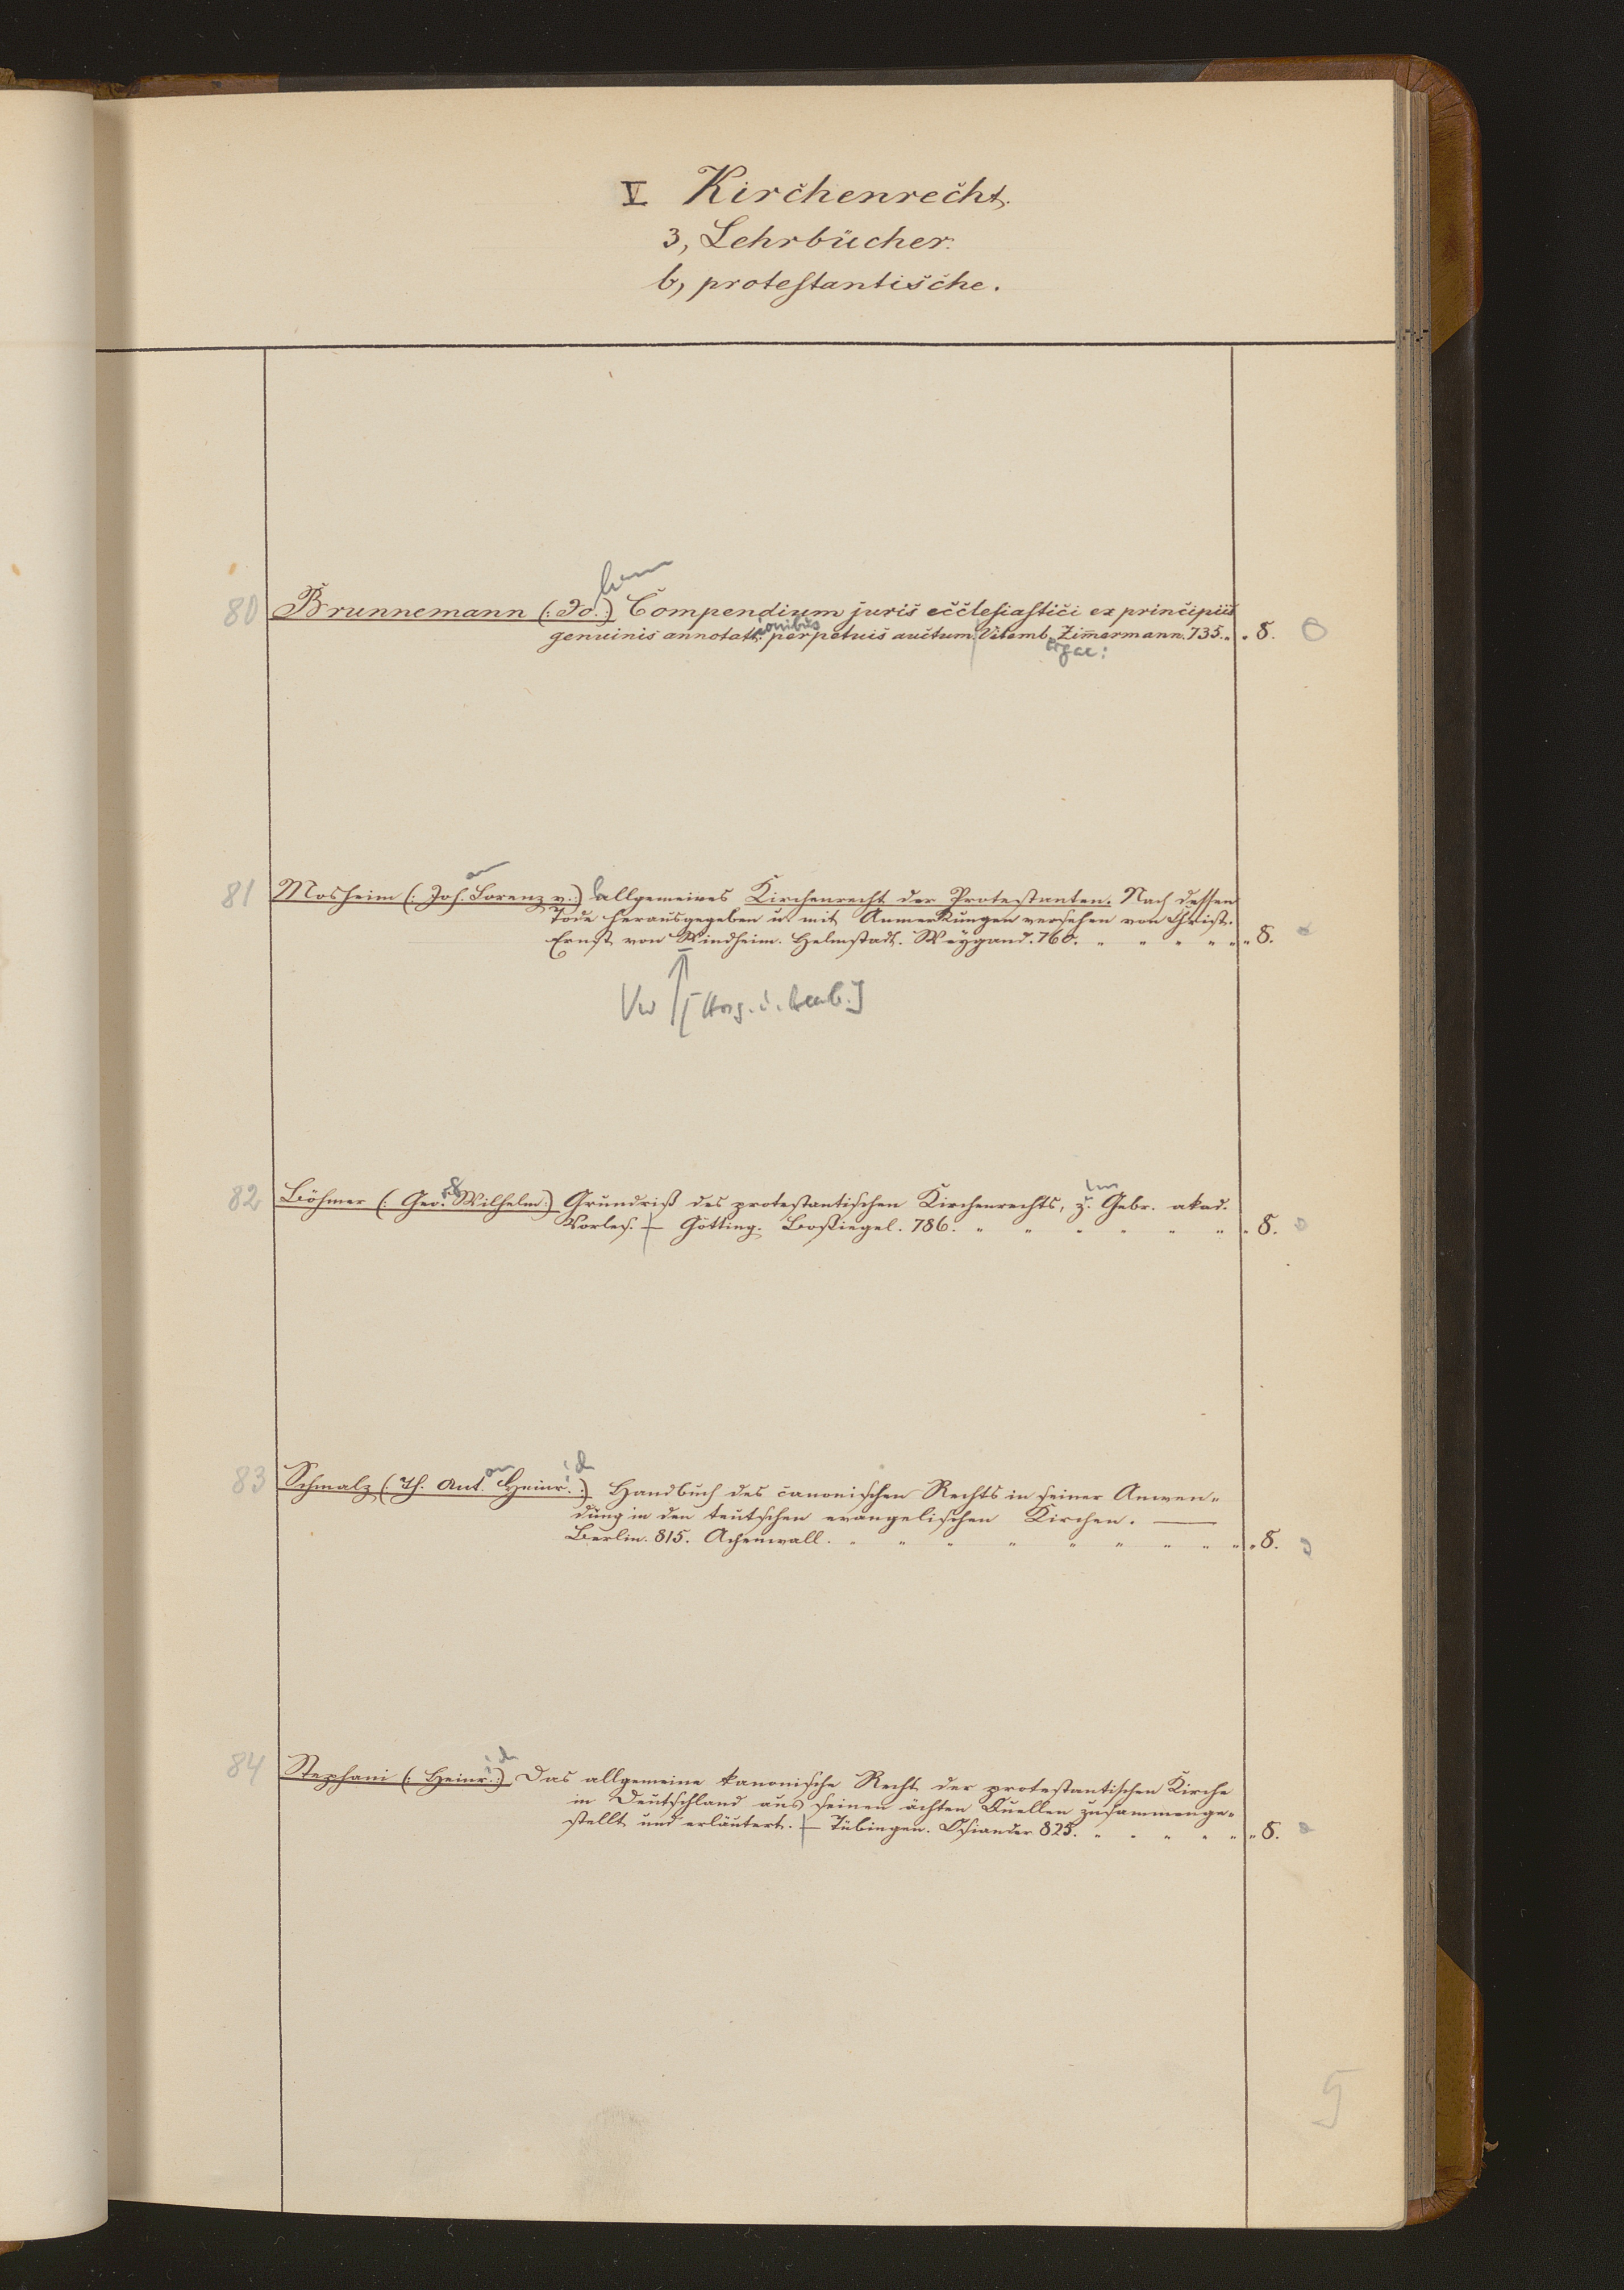 V Kirchenrecht.
3, Lehrbücher.
b, protestantische.
80 Brunnemann (: Jo. :) Compendium juris ecclesiastici ex principiis
genuinis annotat: ionibus perpetuis auctum. Vitemb. Zimmermann. 735. 8.
81 Mosheim (: Joh. Lorenz v. :) allgemeines Kirchenrecht der Protestanten. Nach dessen
Tode herausgegeben u. mit Anmerkungen versehen von Christ.
Ernst von Windheim. Helmstadt. Weygand. 760. 8.
82 Böhmer (: Geo. Wilhelm :) Grundriß des protestantischen Kirchenrechts, z. Gebr. akad.
Vorles. – Götting. Bossiegel. 786. 8.
83 Schmalz (: Th. Ant. Heinr. :) Handbuch des canonischen Rechts in seiner Anwen-
dung in den teutschen evangelischen Kirchen. —
Berlin. 815. Achenwall. 8.
84 Stephani (: Heinr. :) Das allgemeine kanonische Recht der protestantischen Kirche
in Deutschland aus seinen ächten Quellen zusammenge-
stellt und erläutert. – Tübingen. Osiander 825. 8.
5